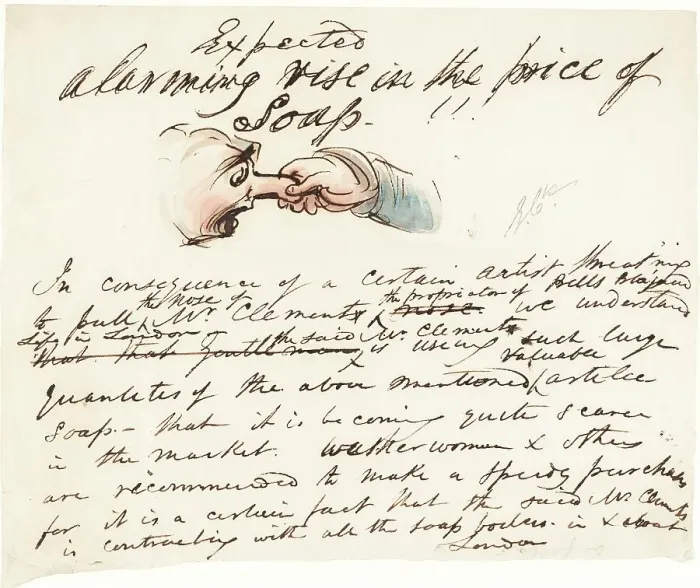 Expected
alarming rise in the price of
Soap - !!!
In consequence of a certain artist threat'ning
the nose of the proprietor of Bells
to pull Mr Clements nose. we understand
Life in London - the said Mr Clements
that that gentleman is using such large
valuable
quantites of the above mentioned article
soap. - that it is becoming quite scarce
in the market. washerwomen & others
are recommended to make a speedy purchase
for it is a certain fact that the said Mr Clements
is contracting with all the soap boilers. in & about
London